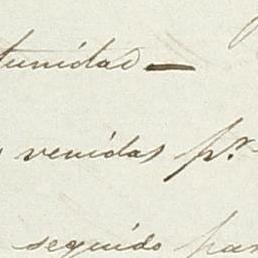 tunidad —
venidas pr.
seguido par